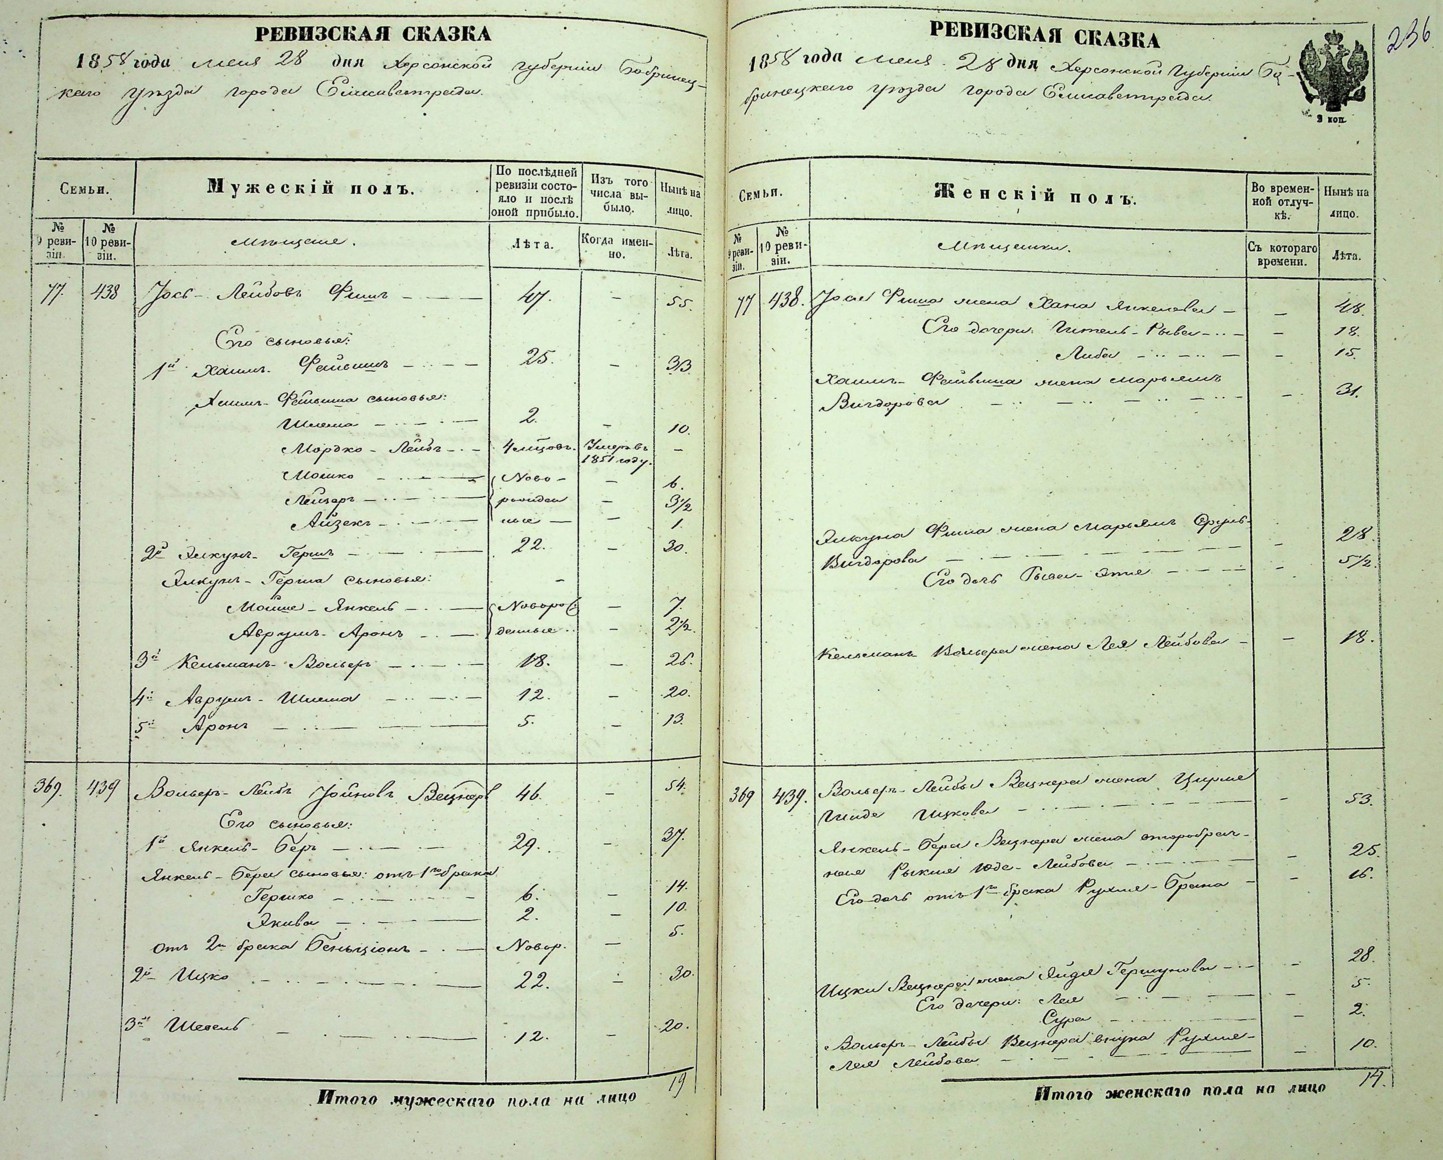 РЕВИЗСКАЯ СКАЗКА
1858 года Мая 28 дня Херсонской губерніи Бобринец-
каго уѣзда города Елисаветграда.
Семьи.
Мужескій полъ.
По послѣдней ревизіи состояло и послѣ оной прибыло.
Изъ того числа выбыло.
Нынѣ на лицо.
№ 9 ревизіи.
№ 10 ревизіи.
Мѣщане.
Лѣта.
Когда именно.
Лѣта.
77. 438 Іось-Лейбовъ Фишъ 47. – 55.
Его сыновья:
1й Хаимъ-Файвишъ 25. – 33.
Хаимъ-Файвиша сыновья:
Шлема 2. – 10.
Мордко-Лейбъ 4 мѣсцовъ. Умеръ въ 1851 году. –
Мошко Ново- – 6.
Лейзеръ рожден – 3½
Айзекъ ные – 1.
2й Янкунъ-Гершъ 22. – 30.
Янкунъ-Герша сыновья: –
Мойше-Янкель Новоро – 7.
Аврумъ-Аронъ денные – 2½.
3й Кельманъ-Вольеръ 18. – 26.
4й Аврумъ-Шлема 12. – 20.
5й Аронъ 5. – 13.
369. 439 Вольеръ-Лейбъ Іойновъ Вецнеръ 46. – 54.
Его сыновья:
1й Янкель-Беръ 29. – 37.
Янкель-Бера сыновья: отъ 1го брака
Гершко 6. – 14.
Акива 2. – 10.
отъ 2го брака Беньціонъ Новор. – 5.
2й Ицко 22. – 30.
3й Шевель 12. – 20.
Итого мужескаго пола на лицо 19
РЕВИЗСКАЯ СКАЗКА
236
1858 года Мая 28 дня Херсонской губерніи Бо-
бринецкаго уѣзда города Елисаветграда.
3 коп.
Семьи.
Женскій полъ.
Во временной отлучкѣ.
Нынѣ на лицо.
№ 9 ревизіи.
№ 10 ревизіи.
Мѣщанки.
Съ котораго времени.
Лѣта.
77 438. Іося Фиша жена Хана Янкелева – 48.
Его дочери: Гитель-Рыва – 18.
Либа – 15.
Хаимъ-Файвиша жена Марьямъ
Вигдорова – 31.
Янкуна Фиша жена Марьямъ
Вигдорова – 28.
Его дочь Этя – 5½.
Кельманъ Вольера жена Лея Лейбова – 18.
369 439. Вольеръ-Лейбы Вецнера жена
Ицкова – 53.
Янкель-Бера Вецнера жена второбрач-
ная Лейбова – 25.
Его дочь отъ 1го брака Рухля-Брана – 16.
Ицки Вецнера жена Гершунова – 28.
Его дочери: Лея – 5.
Сура – 2.
Вольеръ-Лейбы Вецнера внука Рухля-
Лея Лейбова – 10.
Итого женскаго пола на лицо 14.